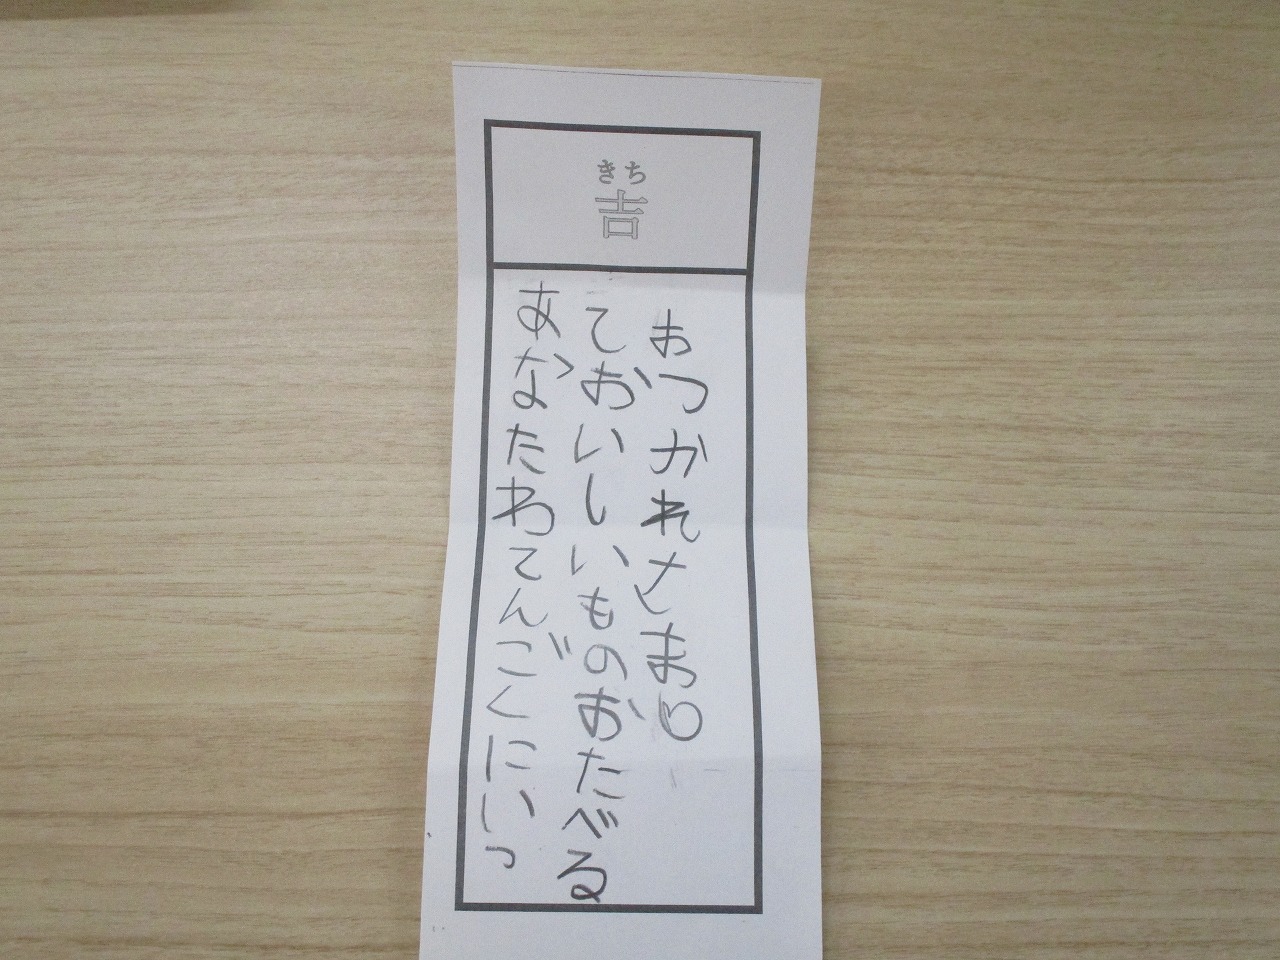 きち
吉
あなたわてんごくにいっ
ておいしいものおたべる
おつかれさま